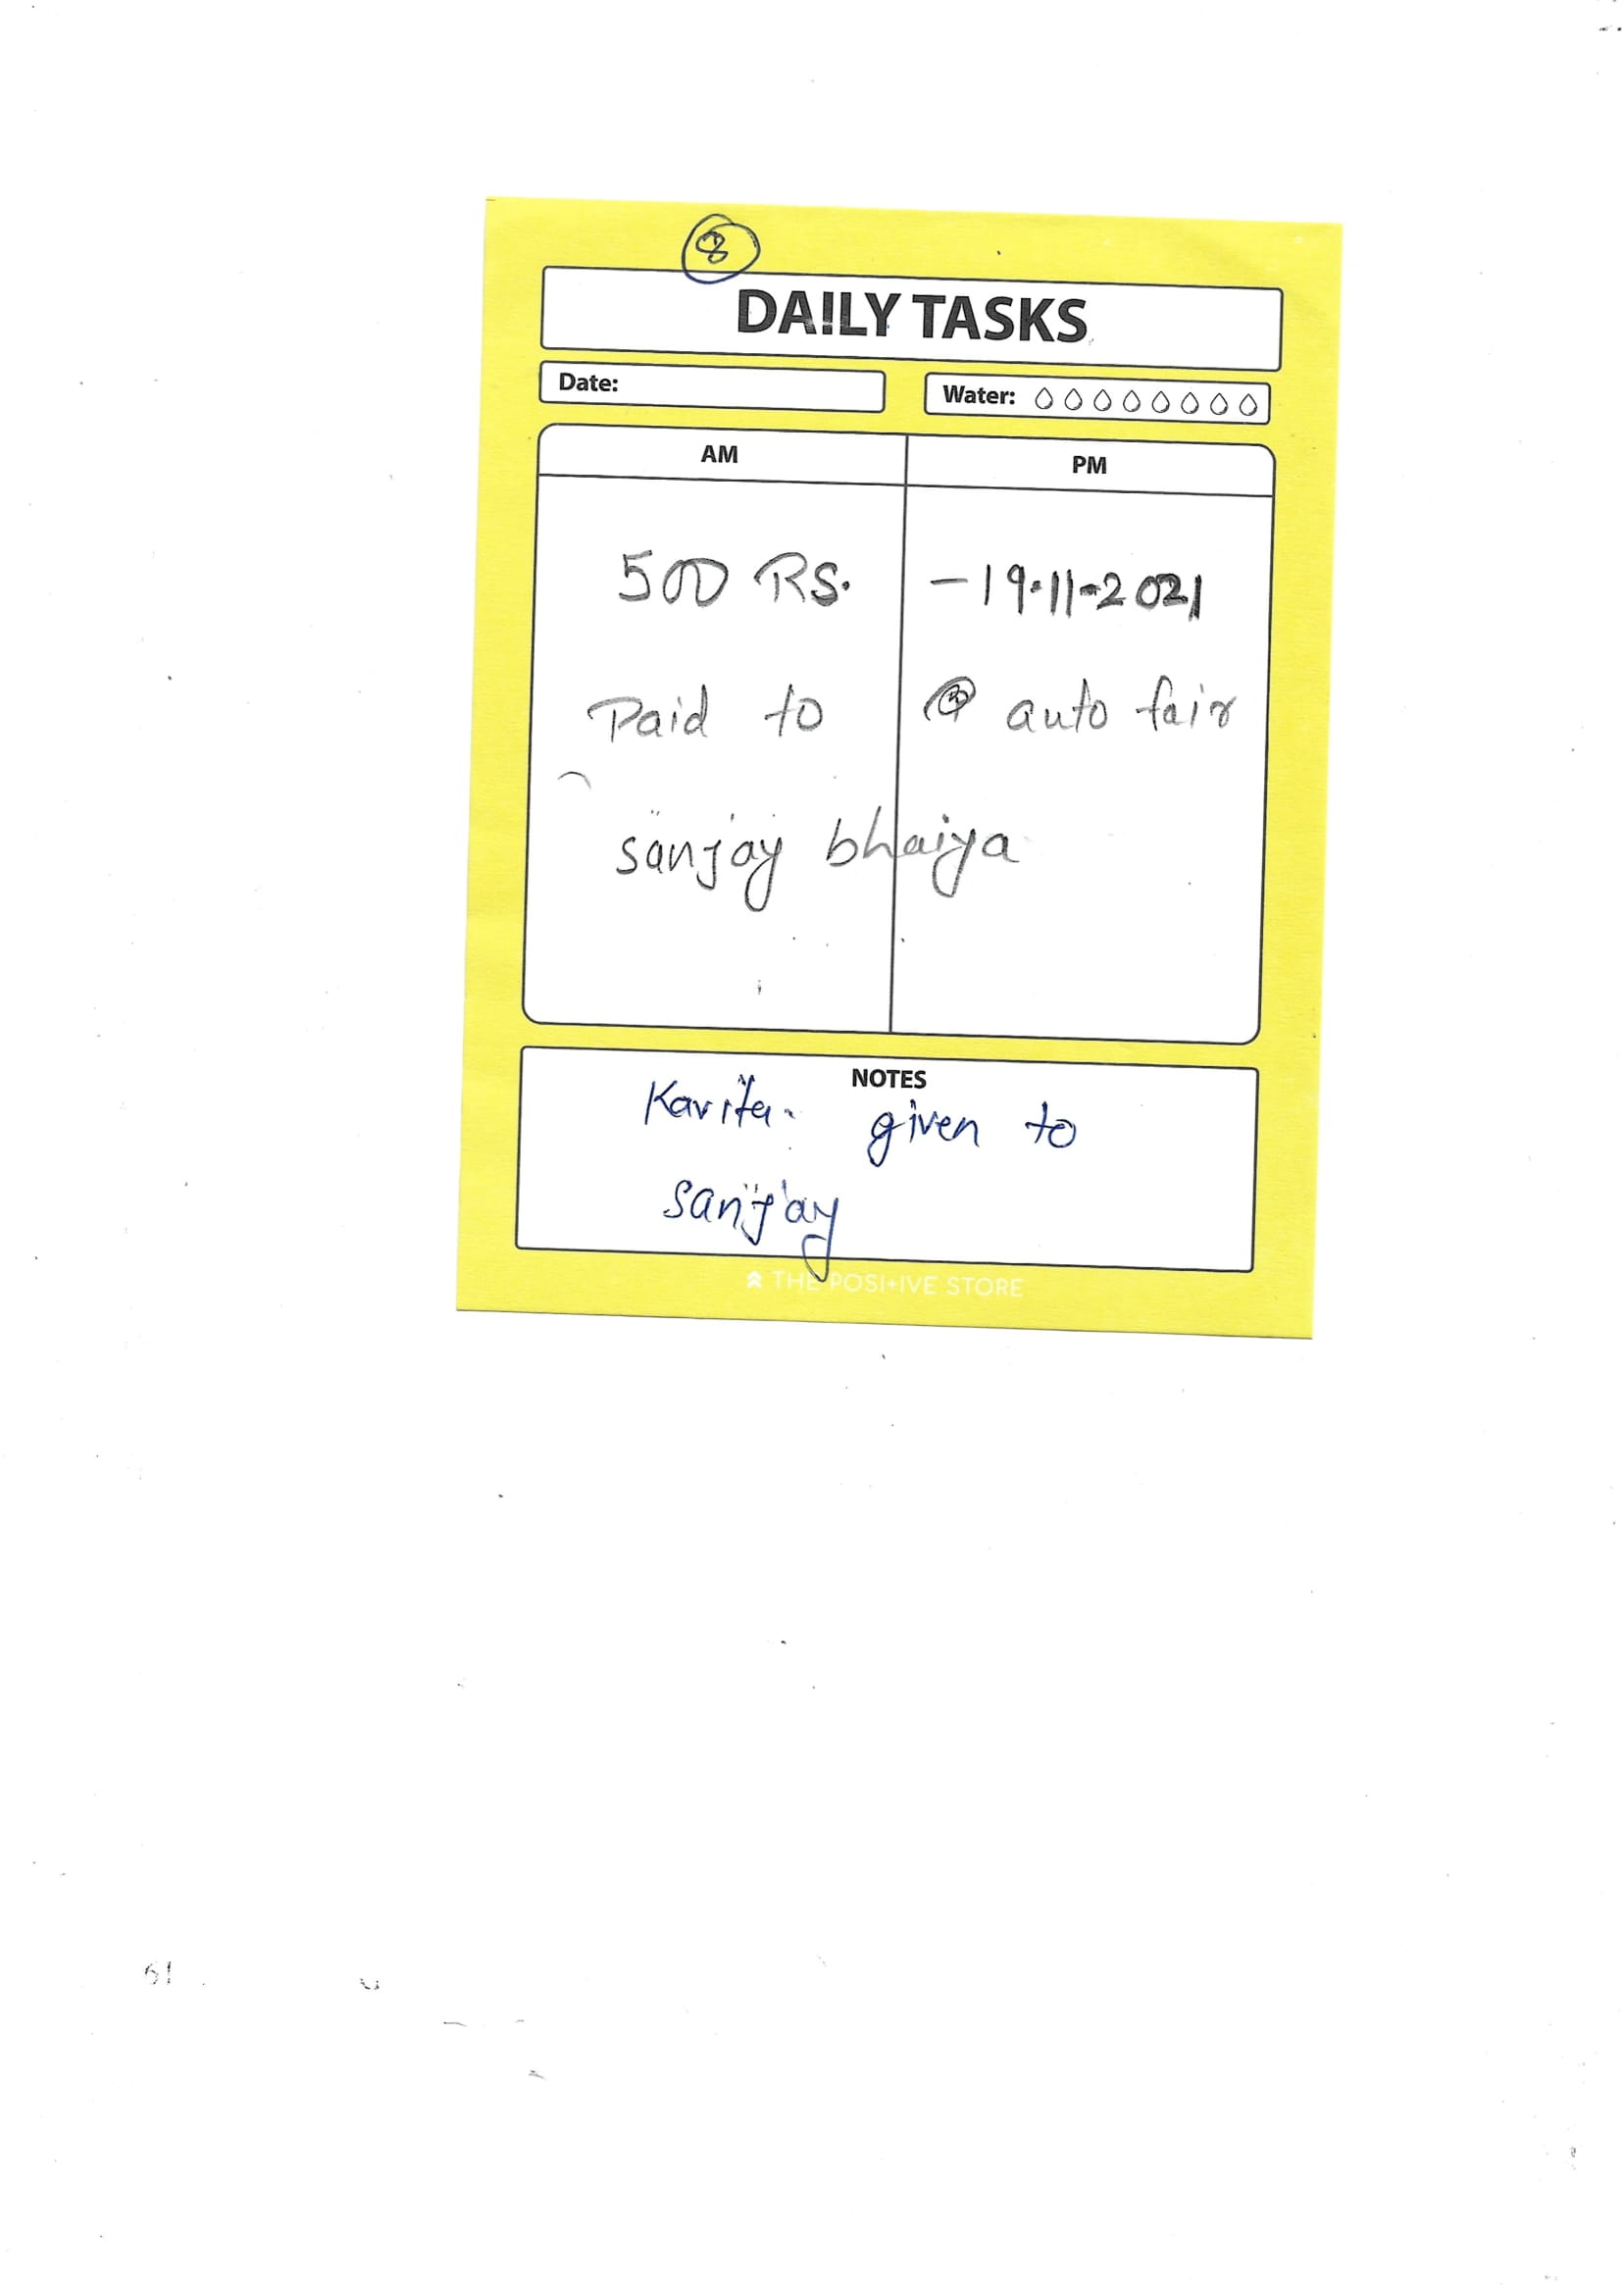 8
DA!LY TASKS
Date:
Water:
AM PM
500 Rs. -19.11-2021
Paid to @ auto fair
sanjay bhaiya
NOTES
Kavita. given to
sanjay
THE POSI+IVE STORE
61